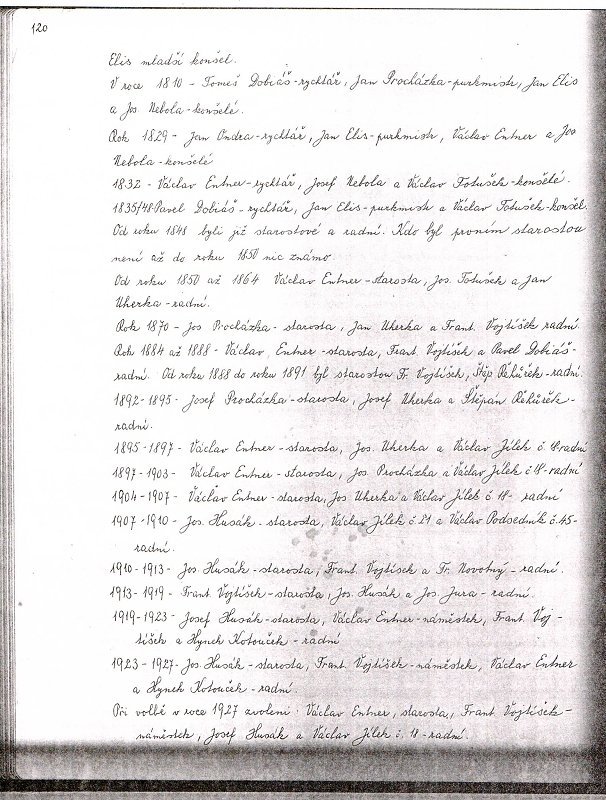 120
Elis mladší konšel.
V roce 1810 - Tomeš Dobiáš-rychtář, Jan Procházka-purkmistr, Jan Elis
a Jos. Nebola-konšelé.
Rok 1829 - Jan Ondra-rychtář, Jan Elis-purkmistr, Václav Entner a Jos
Nebola-konšelé
1832 - Václav Entner-rychtář, Josef Nebola a Václav Fotušek-konšelé.
1835/48 Pavel Dobiáš-rychtář, Jan Elis-purkmistr a Václav Fotušek-konšel
Od roku 1848 byli již starostové a radní. Kdo byl prvním starostou
není až do roku 1850 nic známo.
Od roku 1850 až 1864 Václav Entner-starosta, Jos. Fotušek a Jan
Uherka-radní.
Rok 1870 - Jos Procházka-starosta, Jan Uherka a Frant. Vojtíšek radní
Rok 1884 až 1888 - Václav, Entner-starosta, Frant. Vojtíšek a Pavel Dobiáš-
radní. Od roku 1888 do roku 1891 byl starostou Fr. Vojtíšek, Štěp Řehůřek-radní.
1892-1895- Josef Procházka-starosta, Josef Uherka a Štěpán Řehůřek-
radní.
1895-1897- Václav Entner-starosta, Jos. Uherka a Václav Jílek č 18-radní
1897-1903- Václav Entner-starosta, Jos Procházka a Václav Jílek č 18-radní
1904-1907- Václav Entner-starosta, Jos Uherka a Václav Jílek č 18- radní
1907-1910- Jos. Husák-starosta, Václav Jílek č 21 a Václav Podsedník č.45-
radní.
1910-1913- Jos Husák-starosta, Frant. Vojtíšek a Fr. Novotný-radní.
1913-1919- Frant Vojtíšek-starosta, Jos. Husák a Jos. Jura-radní.
1919-1923- Josef Husák-starosta, Václav Entner-náměstek, Frant. Voj-
tíšek a Hynek Kotouček-radní
1923-1927-Jos. Husák-starosta, Frant. Vojtíšek-náměstek, Václav Entner
a Hynek Kotouček-radní.
Při volbě v roce 1927 zvoleni: Václav Entner, starosta, Frant Vojtíšek-
náměstek, Josef Husák a Václav Jílek č. 18-radní.